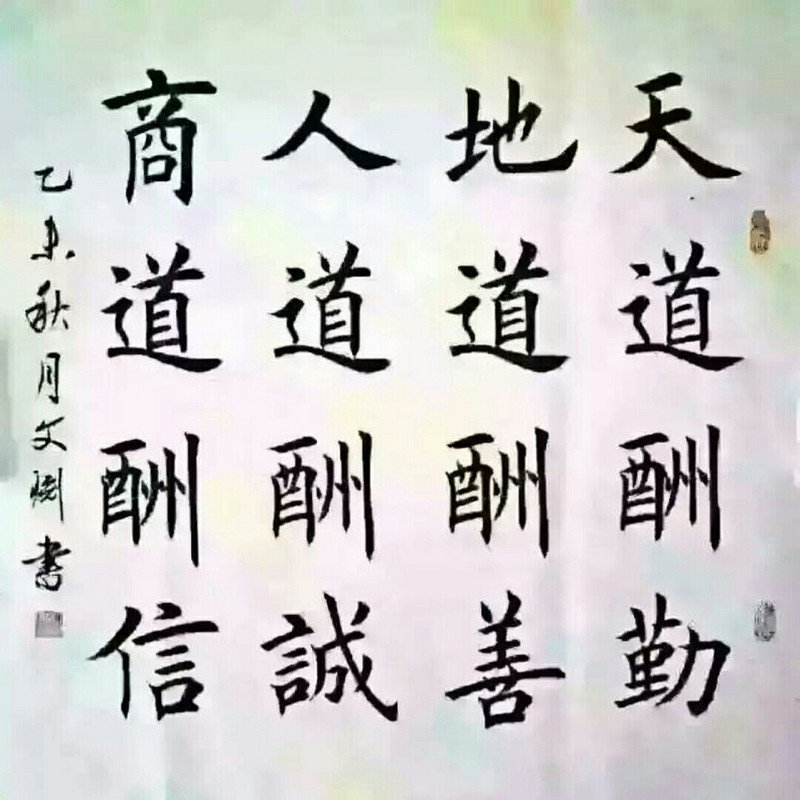 天道酬勤
地道酬善
人道酬誠
商道酬信
乙未秋月文澍書